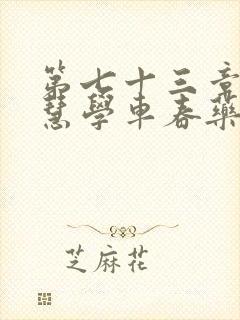 第七十三章
慧學車春藥
芝麻花